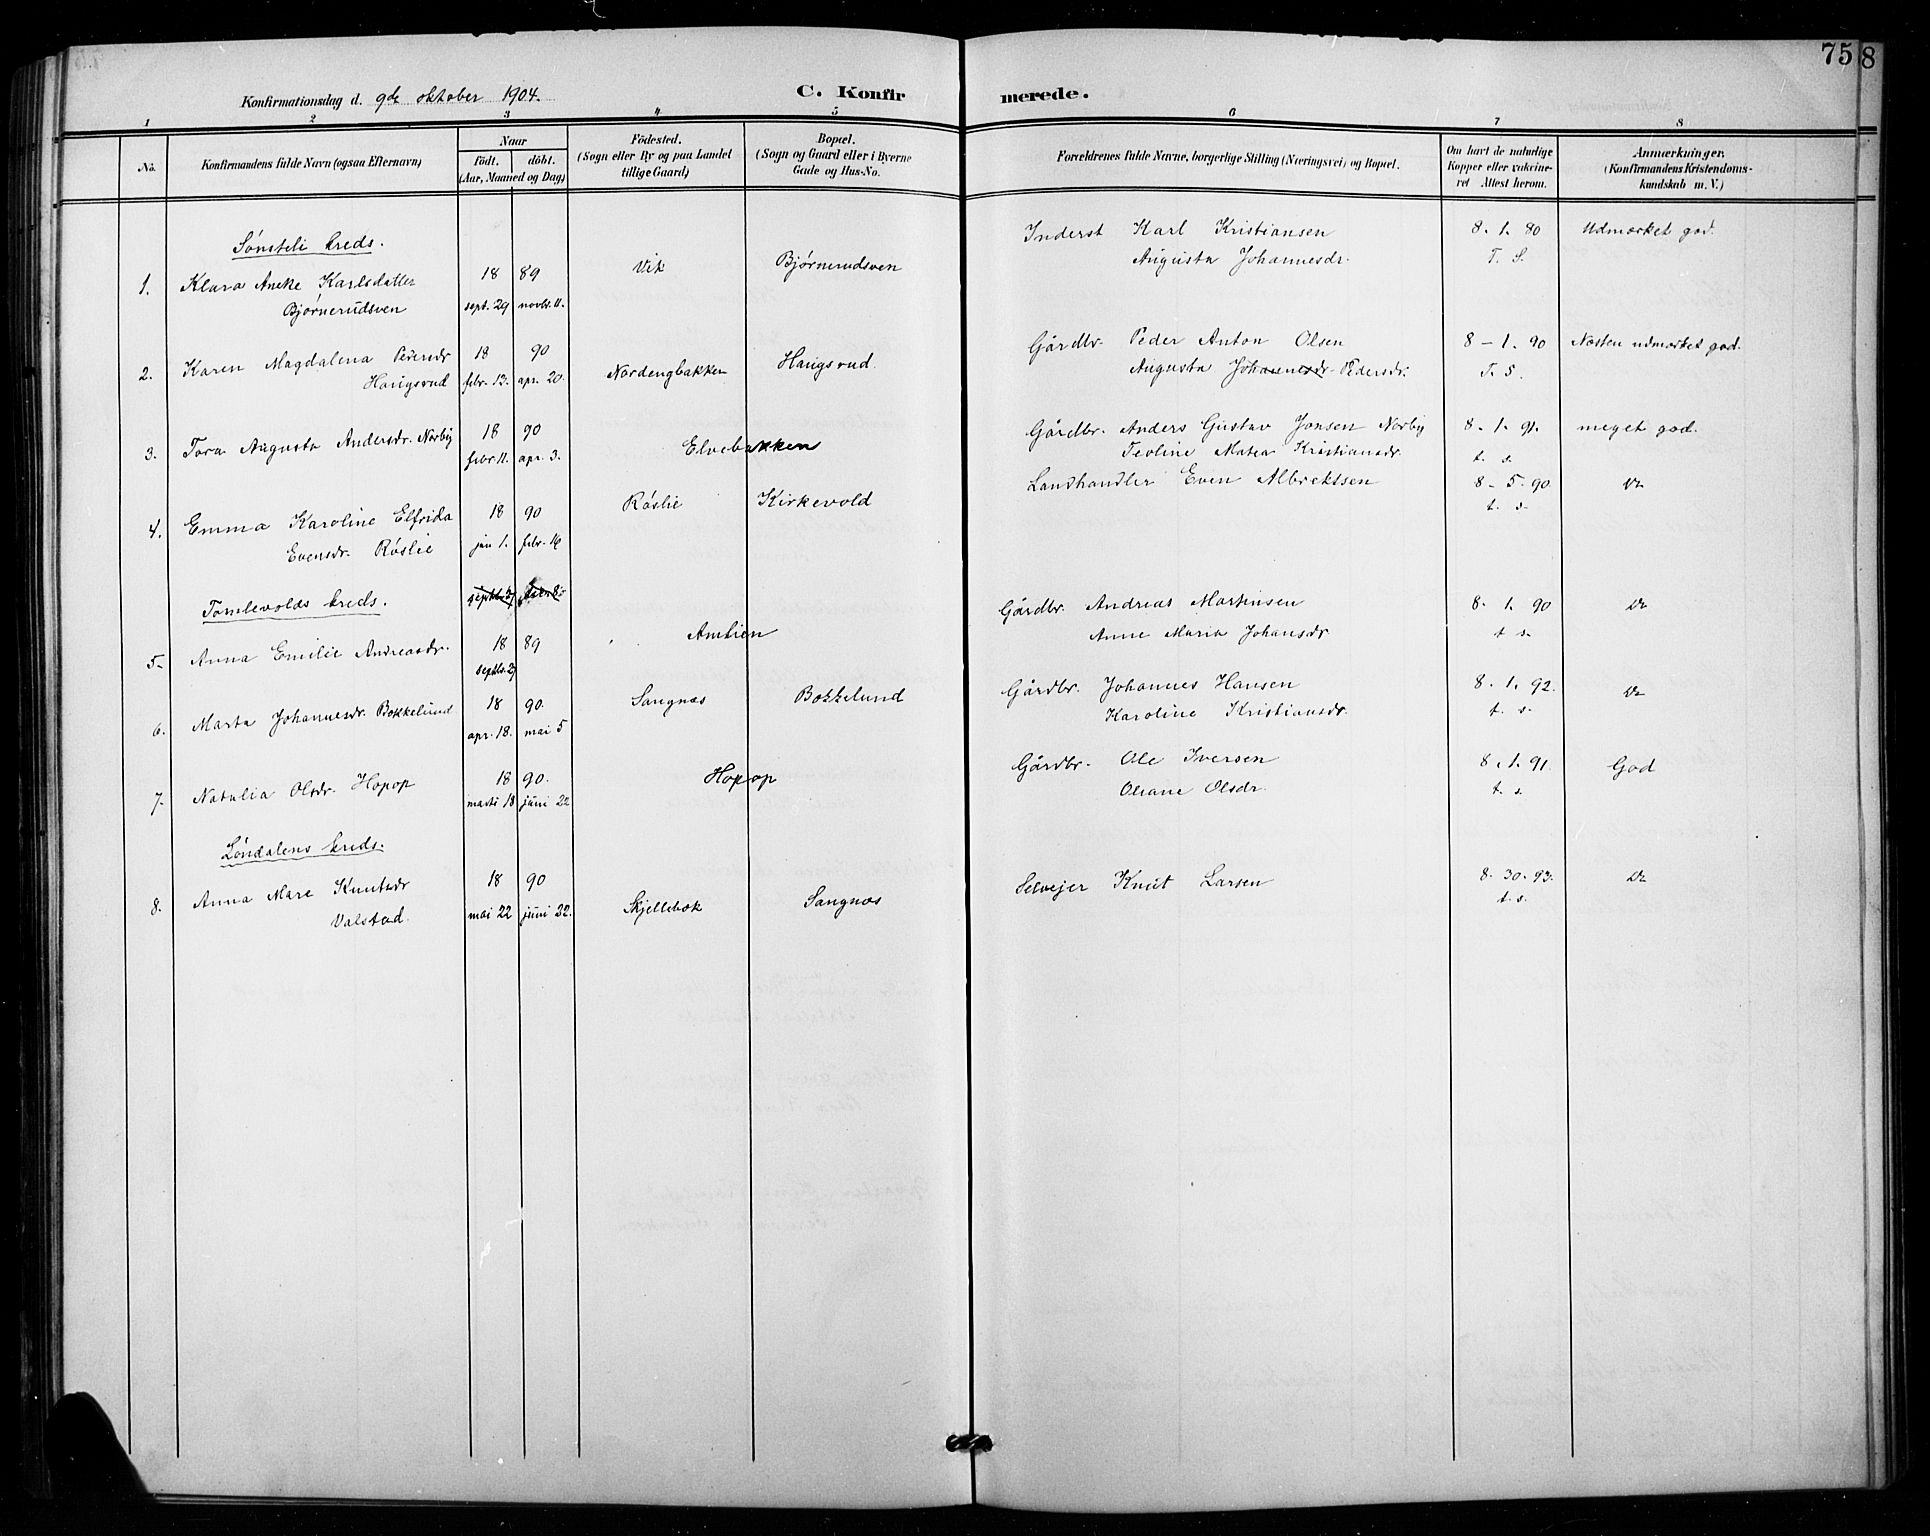 75
8
Konfirmationsdag d. 9de oktober 1904.
C. Konfirmerede.
1 2 3 4 5 6 7 8
No.
Konfirmandens fulde Navn (ogsaa Efternavn)
Naar
födt. döbt.
(Aar, Maaned og Dag)
Födested.
(Sogn eller By og paa Landet
tillige Gaard)
Bopæl.
(Sogn og Gaard eller i Byerne
Gade og Hus-No.
Forældrenes fulde Navne, borgerlige Stilling (Næringsvei) og Bopæl.
Om havt de naturlige
Kopper eller vakcine-
ret Attest herom.
Anmærkninger.
(Konfirmandens Kristendoms-
kundskab m. V.)
Sønsteli kreds.
1. Klara Aneke Karlsdatter
Bjørnerudsven
18 89
sept. 29 novbr. 11.
Vik
Bjørnerudsven
Inderst Karl Kristiansen
Augusta Johannesdr.
8. 1. 80
T. S.
Udmærket god.
2. Karen Magdalena Pedersdr
Haugsrud
18 90
febr. 13. apr. 20.
Nordengbakken
Haugsrud.
Gårdbr. Peder Anton Olsen
Augusta Johannesdr. Pedersdr.
8 - 1. 90
T. S.
Næsten udmærket god.
3. Tora Augusta Andersdr. Norby
18 90
febr 11. apr. 3.
Elvebakken
Gårdbr. Anders Gustav Jonsen Norby
Teoline Matea Kristiansdr.
8. 1. 91.
t. s.
meget god.
4. Emma Karoline Elfrida
Evensdr. Røslie
18 90
jan 1. febr. 16
Røslie
Kirkevold
Landhandler Even Albrektsen
8 - 5. 90
t. s.
Do
Tomlevolds kreds.
septbr. 27
5. Anna Emilie Andreasdr.
18 89
septbr. 27
Amlien
Gårdbr. Andreas Martinsen
Anne Maria Johansdr
8. 1. 90
t s.
Do
6. Marta Johannesdr. Bokkelund
18 90.
apr. 18. mai 5
Sangnæs
Bokkelund
Gårdbr. Johannes Hansen
Karoline Kristiansdr.
8. 1. 92.
t. s.
Do
7. Natalia Olsdr. Hopop
18 90.
marts 18 juni 22
Hopop
Gårdbr. Ole Iversen
Oleane Olsdr.
8. 1. 91.
t. s.
God
Løndalens kreds.
8. Anna Mare Knutsdr
Valstad.
18 90
mai 22 juni 22.
Skjellebæk
Sangnæs
Selvejer Knut Larsen
8. 30. 93.
t. s.
Do